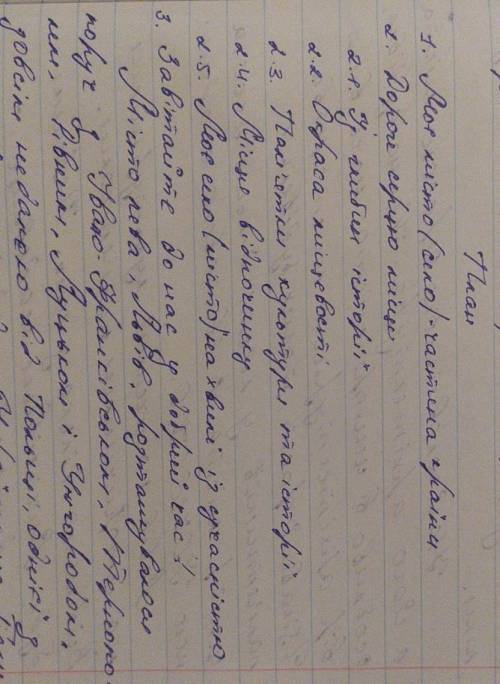 План
1. Моє місто (село) - частина країни
2. Дорогі серцю місця
2.1. Із глибин історії
2.2. Окраса місцевості
2.3. Пам'ятки культури та історії
2.4. Місце відпочинку
2.5. Моє село (місто) на хвилі із сучасністю
3. Завітайте до нас у добрий час!
Місто лева, Львів, розташувалося
поруч з Івано-Франківськом, Терноpo-
лем, Рівним, Луцьком і Ужгородом.
зовсім недалеко від Польщі, однієї з